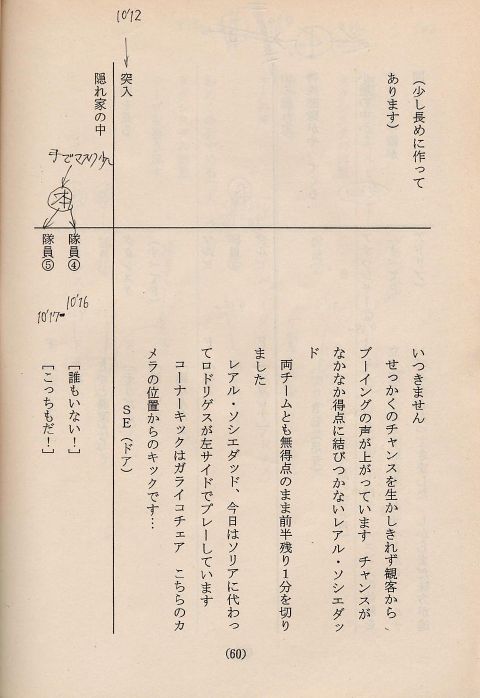 （少し長めに作って
あります）
いつきません
せっかくのチャンスを生かしきれず観客から
ブーイングの声が上がっています　チャンスが
なかなか得点に結びつかないレアル・ソシエダッ
ド
両チームとも無得点のまま前半残り１分を切り
ました
レアル・ソシエダッド、今日はソリアに代わっ
てロドリゲスが左サイドでプレーしています
コーナーキックはガライコチェア　こちらのカ
メラの位置からのキックです…
10'12
突入
SE（ドア）
隠れ家の中
手でマスク少
本
隊員④
10'16
［誰もいない！］
隊員⑤
10'17
［こっちもだ！］
(60)